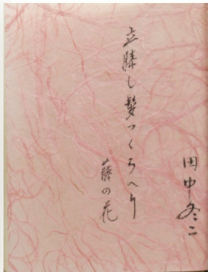 立膝し髪つくろへり
藤の花
田中冬二